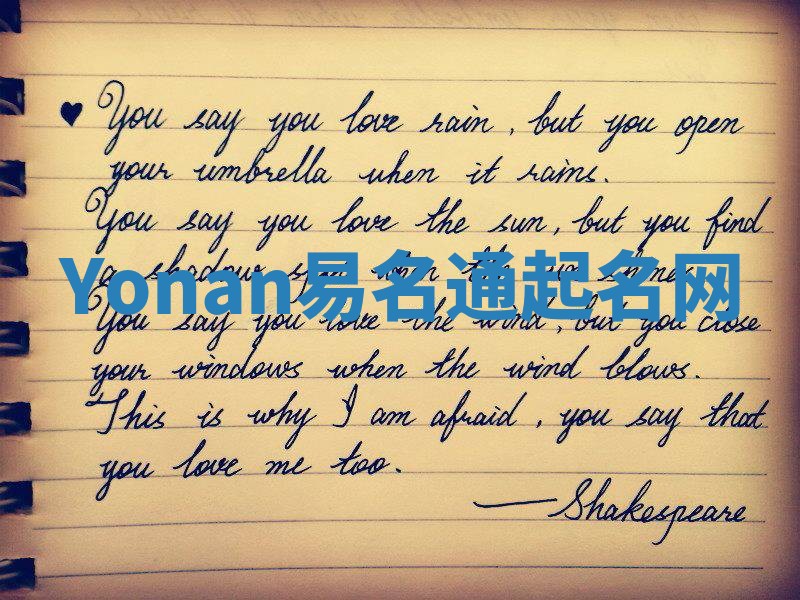 ♥ You say you love rain, but you open
your umbrella when it rains.
You say you love the sun, but you find
a shadow spot when the sun shines.
Yonan易名通起名网
You say you love the wind, but you close
your windows when the wind blows.
This is why I am afraid, you say that
you love me too.
—Shakespeare